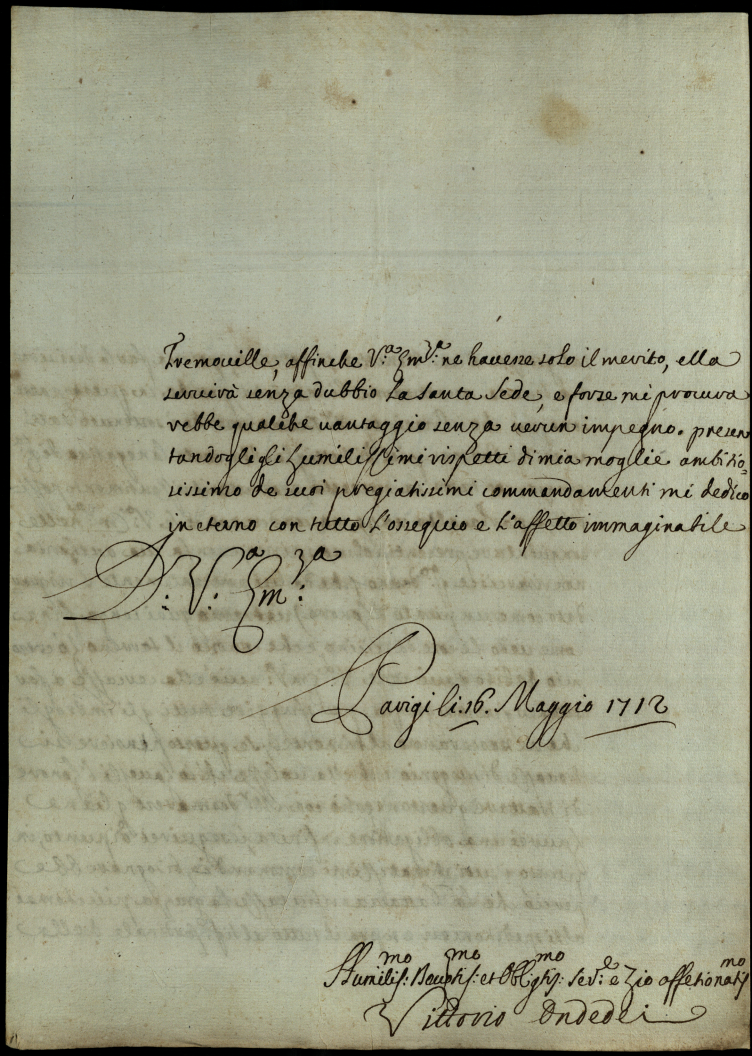 Tremouille, affinche V.ª Em.ª ne havesse solo il merito, ella
servirà senza dubbio La Santa Sede, e forse mi procura
rebbe qualche vantaggio senza verun impegno. presen
tandogli gli humilissimi rispetti di mia moglie ambitio-
sissimo de suoi pregiatissimi commandamenti mi dedico
in eterno con tutto L'ossequio e L'affetto immaginabile
D. V.ª Em.za
Parigi li. 16. Maggio 1712
Humilis.mo Devotis.mo et Obblgtis.mo Ser.e e Zio affetionatis.mo
Vittorio Ondedei